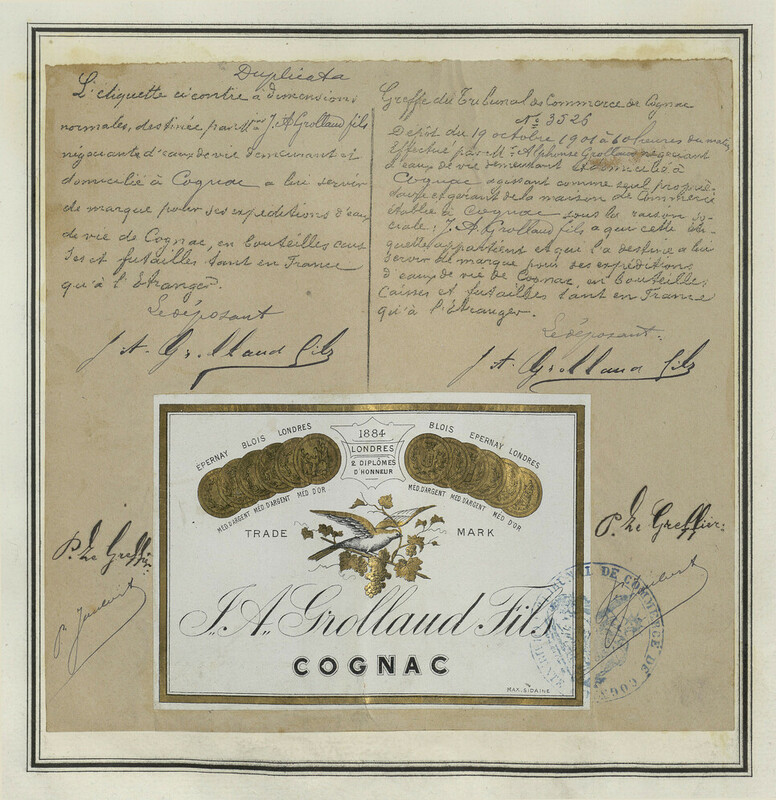 Duplicata
L'étiquette ci contre a dimensions
normales, destinée par Mr J. A Grollaud fils
négociants d'eaux de vie demeurant et
domicilié à Cognac a lui servir
de marque pour ses expeditions d'eaux
de vie de Cognac, en bouteilles cais
ses et futailles tant en France
qu'à l'Etranger.
Le déposant
J. A. Grollaud fils
Greffe du Tribunal de Commerce de Cognac
No 3526
Dépôt du 19 octobre 1901 à heures du matin
Effectué par Mr Alphonse Grollaud négociant
d'eaux de vie demeurant et domicilié à
Cognac agissant comme seul proprié-
taire et gérant de la maison de Commerce
établie à Cognac sous la raison so-
ciale: J. A. Grollaud fils a qui cette éti-
quette appartient et qui l'a destine a lui
servir de marque pour ses expéditions
d'eaux de vie de Cognac, en bouteilles
Caisses et futailles tant en France
qu'à l'Etranger.
Le déposant.
J. A. Grollaud fils
ÉPERNAY BLOIS LONDRES
MÉD. D'ARGENT MÉD. D'ARGENT MÉD. D'OR
1884
LONDRES
2 DIPLÔMES
D'HONNEUR
BLOIS EPERNAY LONDRES
MÉD. D'ARGENT MÉD. D'ARGENT MÉD. D'OR
TRADE MARK
J. A. Grollaud Fils
COGNAC
MAX. SIDAINE
P. Le Greffier
P. Le Greffier
TRIBUNAL DE COMMERCE DE COGNAC